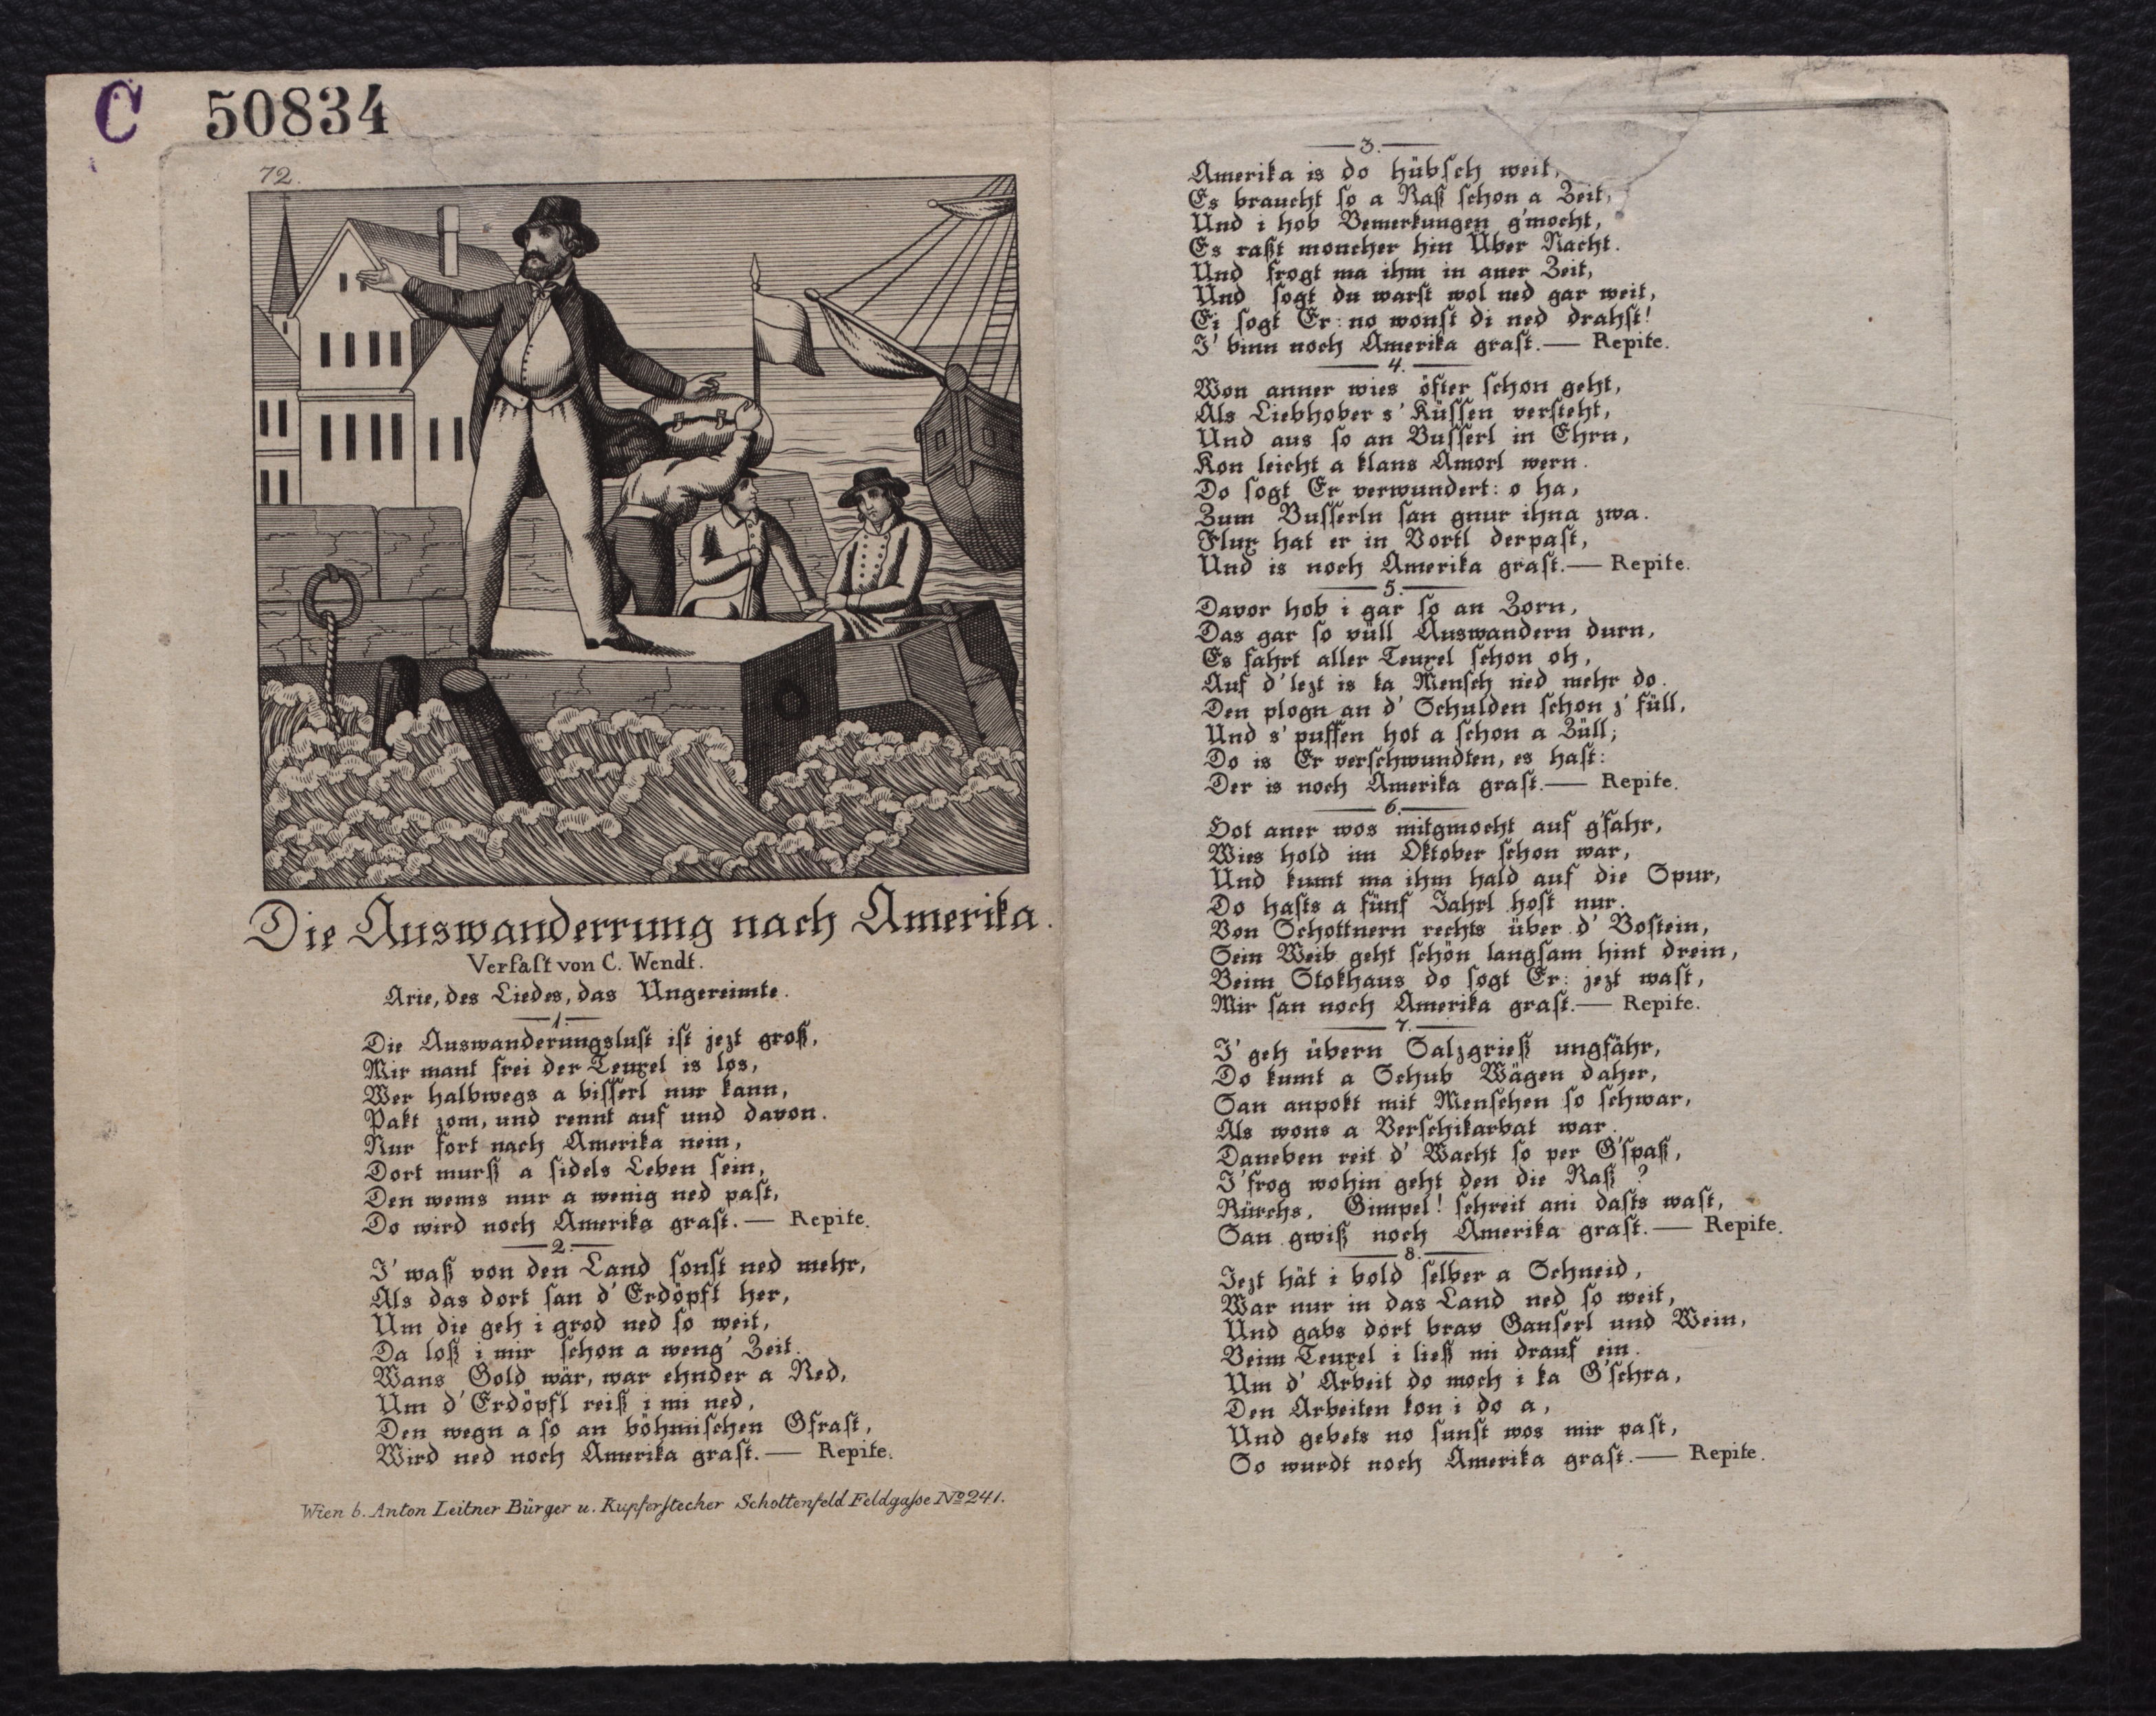 C 50834
72.
Die Auswanderrung nach Amerika.
Verfaſt von C. Wendt.
Arie, des Liedes, das Ungereimte.
1.
Die Auswanderungsluſt iſt jezt groß,
Mir mant frei der Teuxel is los,
Wer halbwegs a biſſerl nur kann,
Pakt zom, und rennt auf und davon.
Nur fort nach Amerika nein,
Dort murß a fidels Leben ſein,
Den wems nur a wenig ned paſt,
Do wird noch Amerika graſt.— Repite.
2.
I' waß von den Land ſonſt ned mehr,
Als das dort ſan d' Erdöpfl her,
Um die geh i grod ned ſo weit,
Da loß i mir ſchon a weng' Zeit.
Wans Gold wär, war ehnder a Red,
Um d' Erdöpfl reiß i mi ned,
Den wegn a ſo an böhmiſchen Gfraſt,
Wird ned noch Amerika graſt.— Repite.
Wien b. Anton Leitner Bürger u. Kupferſtecher Schottenfeld Feldgaſse No 241.
3.
Amerika is do hübſch weit,
Es braucht ſo a Raß ſchon a Zeit,
Und i hob Bemerkungen g'mocht,
Es raßt moncher hin Über Nacht.
Und frogt ma ihm in aner Zeit,
Und ſogt du warſt wol ned gar weit,
Ei ſogt Er: no wonſt di ned drahſt!
I' binn noch Amerika graſt.— Repite.
4.
Won anner wies öfter ſchon geht,
Als Liebhober s' Küſſen verſteht,
Und aus ſo an Buſſerl in Ehrn,
Kon leicht a klans Amorl wern.
Do ſogt Er verwundert: o ha,
Zum Buſſerln ſan gnur ihna zwa.
Flux hat er in Vortl derpaſt,
Und is noch Amerika graſt.— Repite.
5.
Davor hob i gar ſo an Zorn,
Das gar ſo vüll Auswandern durn,
Es fahrt aller Teuxel ſchon oh,
Auf d' lezt is ka Menſch ned mehr do.
Den plogn an d' Schulden ſchon z' füll,
Und s' puffen hot a ſchon a Züll;
Do is Er verſchwundten, es haſt:
Der is noch Amerika graſt.— Repite.
6.
Hot aner wos mitgmocht auf g'fahr,
Wies hold im Oktober ſchon war,
Und kumt ma ihm hald auf die Spur,
Do haſts a fünf Jahrl hoſt nur.
Von Schottnern rechts über d' Boſtein,
Sein Weib geht ſchön langſam hint drein,
Beim Stokhaus do ſogt Er: jezt waſt,
Mir ſan noch Amerika graſt.— Repite.
7.
I' geh übern Salzgrieß ungfähr,
Do kumt a Schub Wägen daher,
San anpokt mit Menſchen ſo ſchwar,
Als wons a Verſchikarbat war.
Daneben reit d' Wacht ſo per G'ſpaß,
I' frog wohin geht den die Raß?
Rürchs, Gimpel! ſchreit ani daſts waſt,
San gwiß noch Amerika graſt.— Repite.
8.
Jezt hät i bold ſelber a Schneid,
War nur in das Land ned ſo weit,
Und gabs dort brav Ganſerl und Wein,
Beim Teuxel i ließ mi drauf ein.
Um d' Arbeit do moch i ka G'ſchra,
Den Arbeiten kon i do a,
Und gebets no ſunſt wos mir paſt,
So wurdt noch Amerika graſt.— Repite.